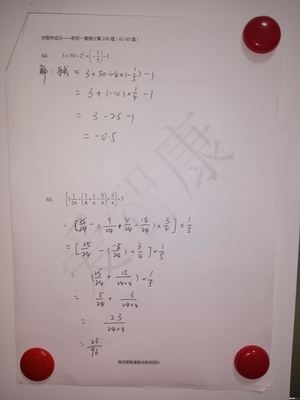 64. 3+50÷2²×(-1/5)-1
解：原式 = 3+50÷4×(-1/5)-1
= 3+(-10)×1/4-1
= 3-2.5-1
= -0.5
65. [1 1/24-(3/8+1/6-3/4)×3/4]÷5
= [25/24-(9/24+4/24-18/24)×3/4]×1/5
= [25/24-(-5/24)×3/4]×1/5
= (25/24+15/24×4)×1/5
= 5/24+3/24×4
= 23/24×4
= 23/96